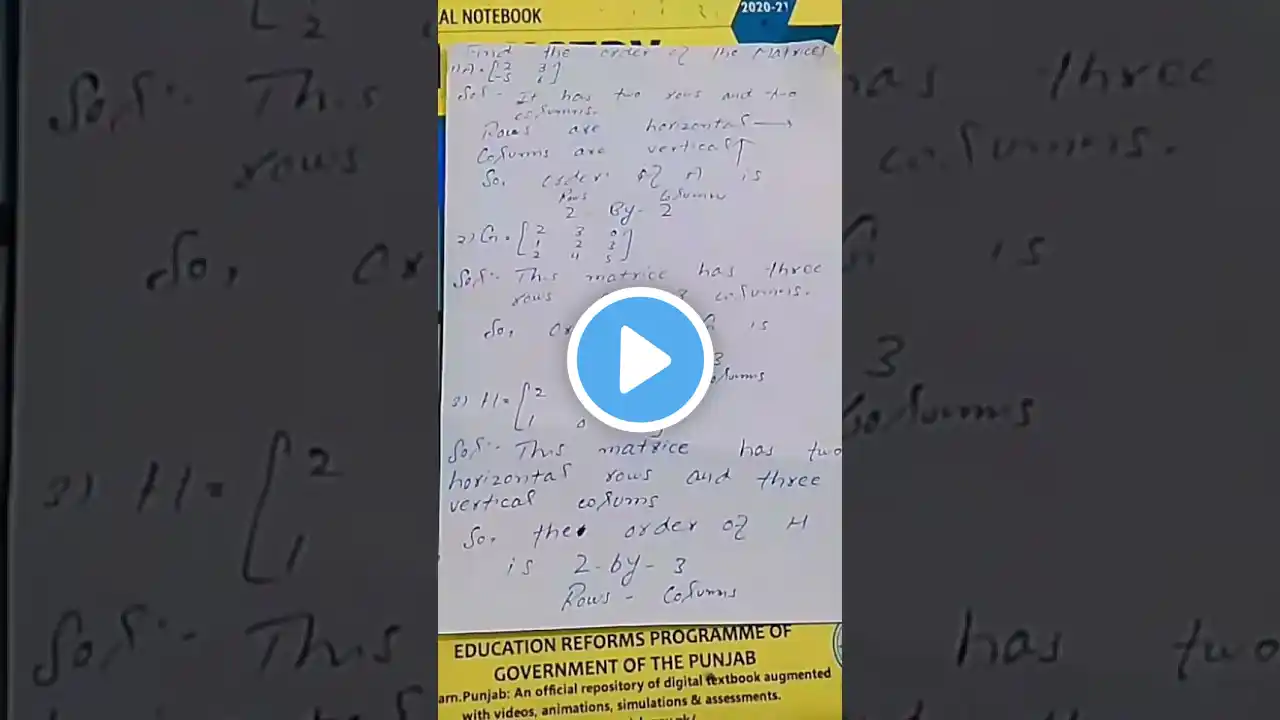 AL NOTEBOOK
2020-21
Find the order of the Matrices
1) A = [2 3
-5 6]
Sol:- It has two rows and two
columns.
Rows are horizontal →
Columns are vertical ↑
So, order of A is
Rows Columns
2 - By - 2
2) G = [2 3 0
1 2 3
2 4 5]
Sol:- This matrice has three
rows 3 columns.
So, is
3
3) H = [2
1 0
Sol:- This matrice has two
horizontal rows and three
vertical colums
So, the order of H
is 2-by-3
Rows - Columns
EDUCATION REFORMS PROGRAMME OF
GOVERNMENT OF THE PUNJAB
arn.Punjab: An official repository of digital textbook augmented
with videos, animations, simulations & assessments.